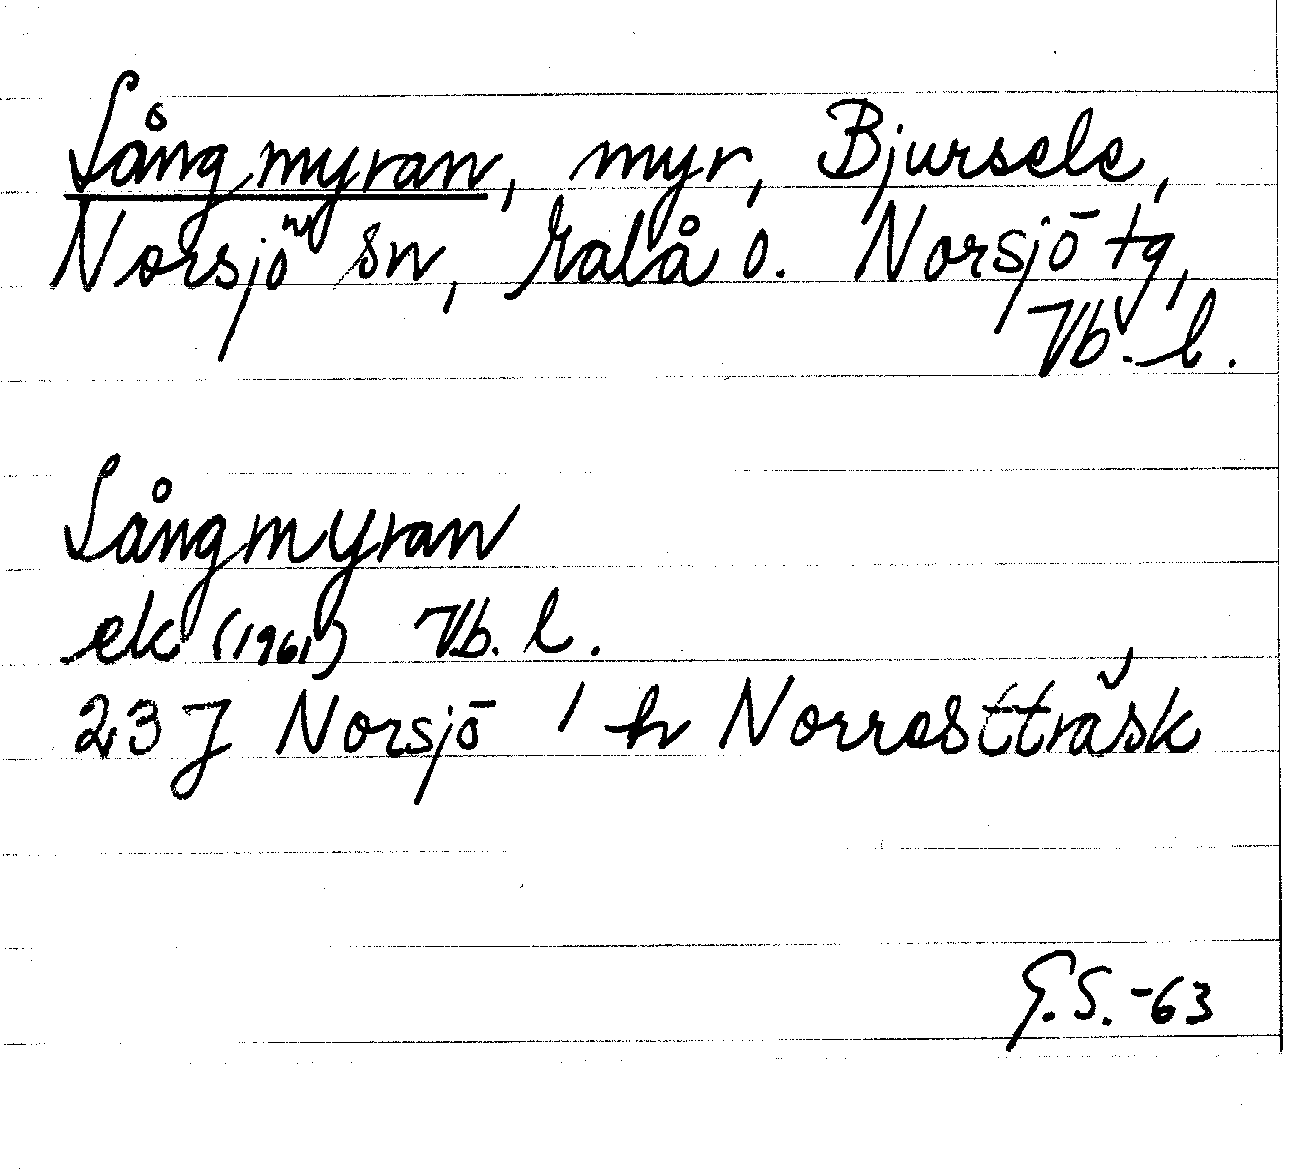 Långmyran, myr, Bjursele,
Norsjö sn, Malå o. Norsjö tg,
Vb. l.
Långmyran
ek (1961) Vb. l.
23 J Norsjö 1 h Norrostträsk
G.S.-63